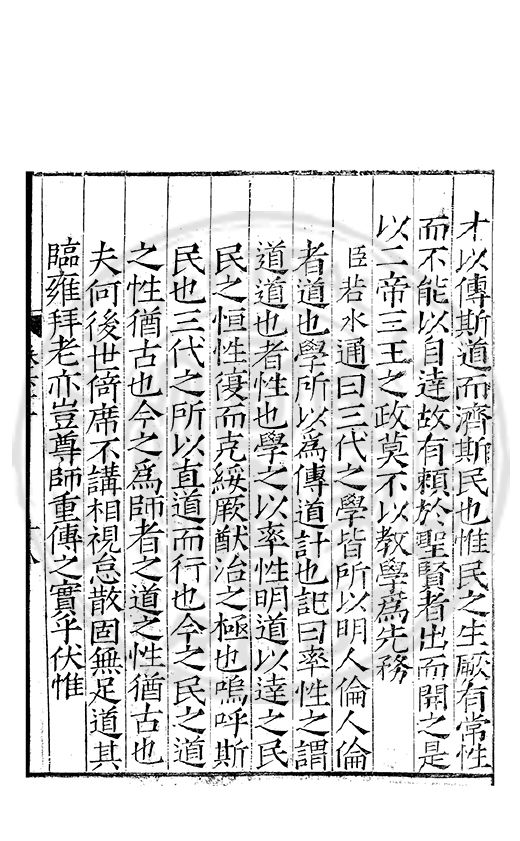 才以傳斯道而濟斯民也惟民之生厥有常性
而不能以自達故有賴於聖賢者出而開之是
以二帝三王之政莫不以教學爲先務
臣若水通曰三代之學皆所以明人倫人倫
者道也學所以爲傳道計也記曰率性之謂
道道也者性也學之以率性明道以達之民
民之恒性復而克綏厥猷治之極也嗚呼斯
民也三代之所以直道而行也今之民之道
之性猶古也今之爲師者之道之性猶古也
夫何後世倚席不講相視怠散固無足道其
臨雍拜老亦豈尊師重傳之實乎伏惟